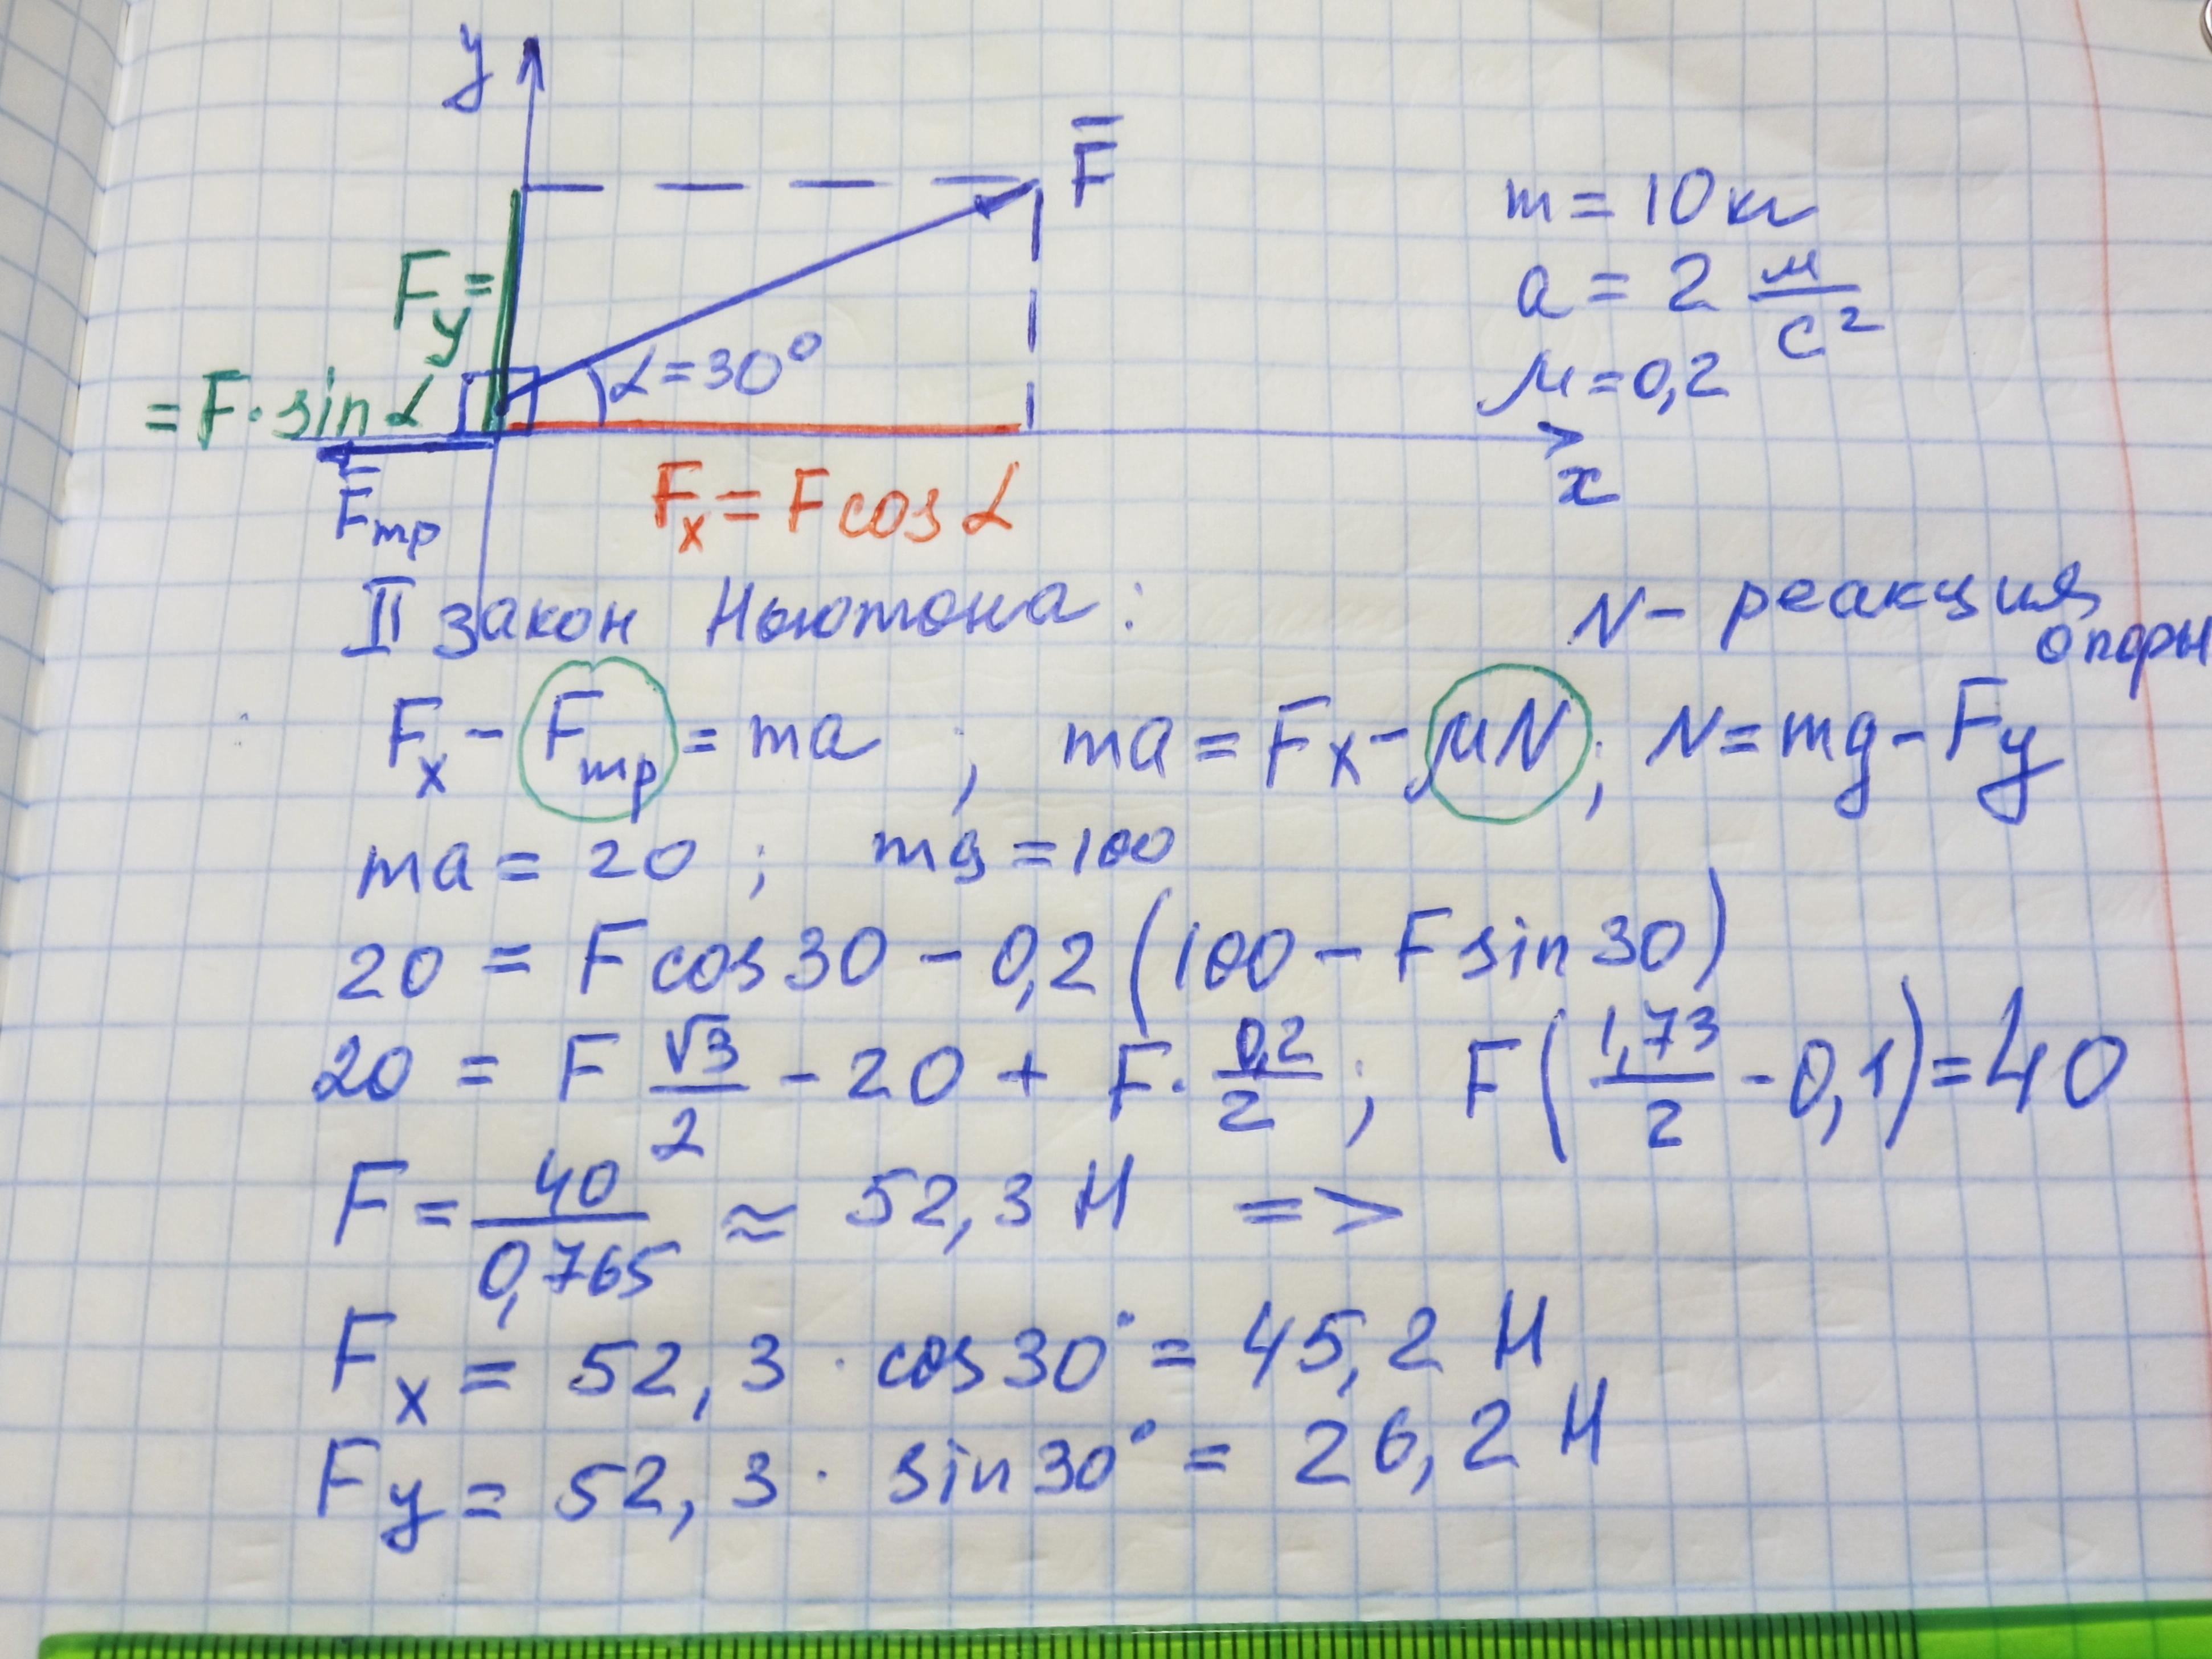 y
F̄
m = 10 кг
a = 2 м/с²
μ = 0,2
Fy =
= F · sin α
α = 30°
x
F̄тр
Fx = F cos α
II закон Ньютона :
N – реакция опоры
Fx – Fтр = ma ; ma = Fx – μN ; N = mg – Fy
ma = 20 ; mg = 100
20 = F cos 30 – 0,2 (100 – F sin 30)
20 = F √3/2 – 20 + F · 0,2/2 ; F (1,73/2 – 0,1) = 40
F = 40/0,765 ≈ 52,3 Н =>
Fx = 52,3 · cos 30° = 45,2 Н
Fy = 52,3 · sin 30° = 26,2 Н